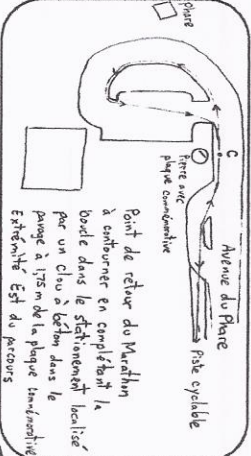 Phare
C
Avenue du Phare
Piste cyclable
Pierre avec
plaque commémorative
Point de retour du Marathon
à contourner en complétant la
boucle dans le stationnement localisé
par un clou à béton dans le
pavage à 1,75 m de la plaque commémorative
Extrémité Est du parcours